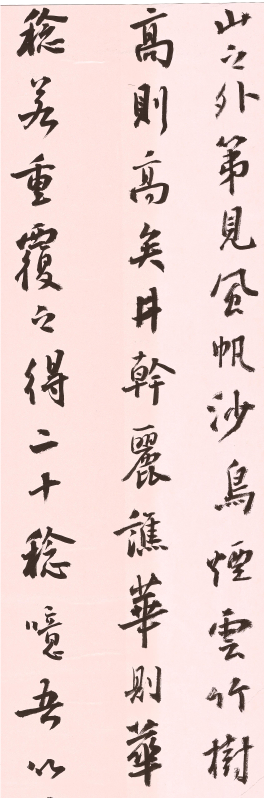 山之外第見風帆沙鳥煙雲竹樹
高則高矣井幹麗譙華則華
稔若重覆之得二十稔噫吾以